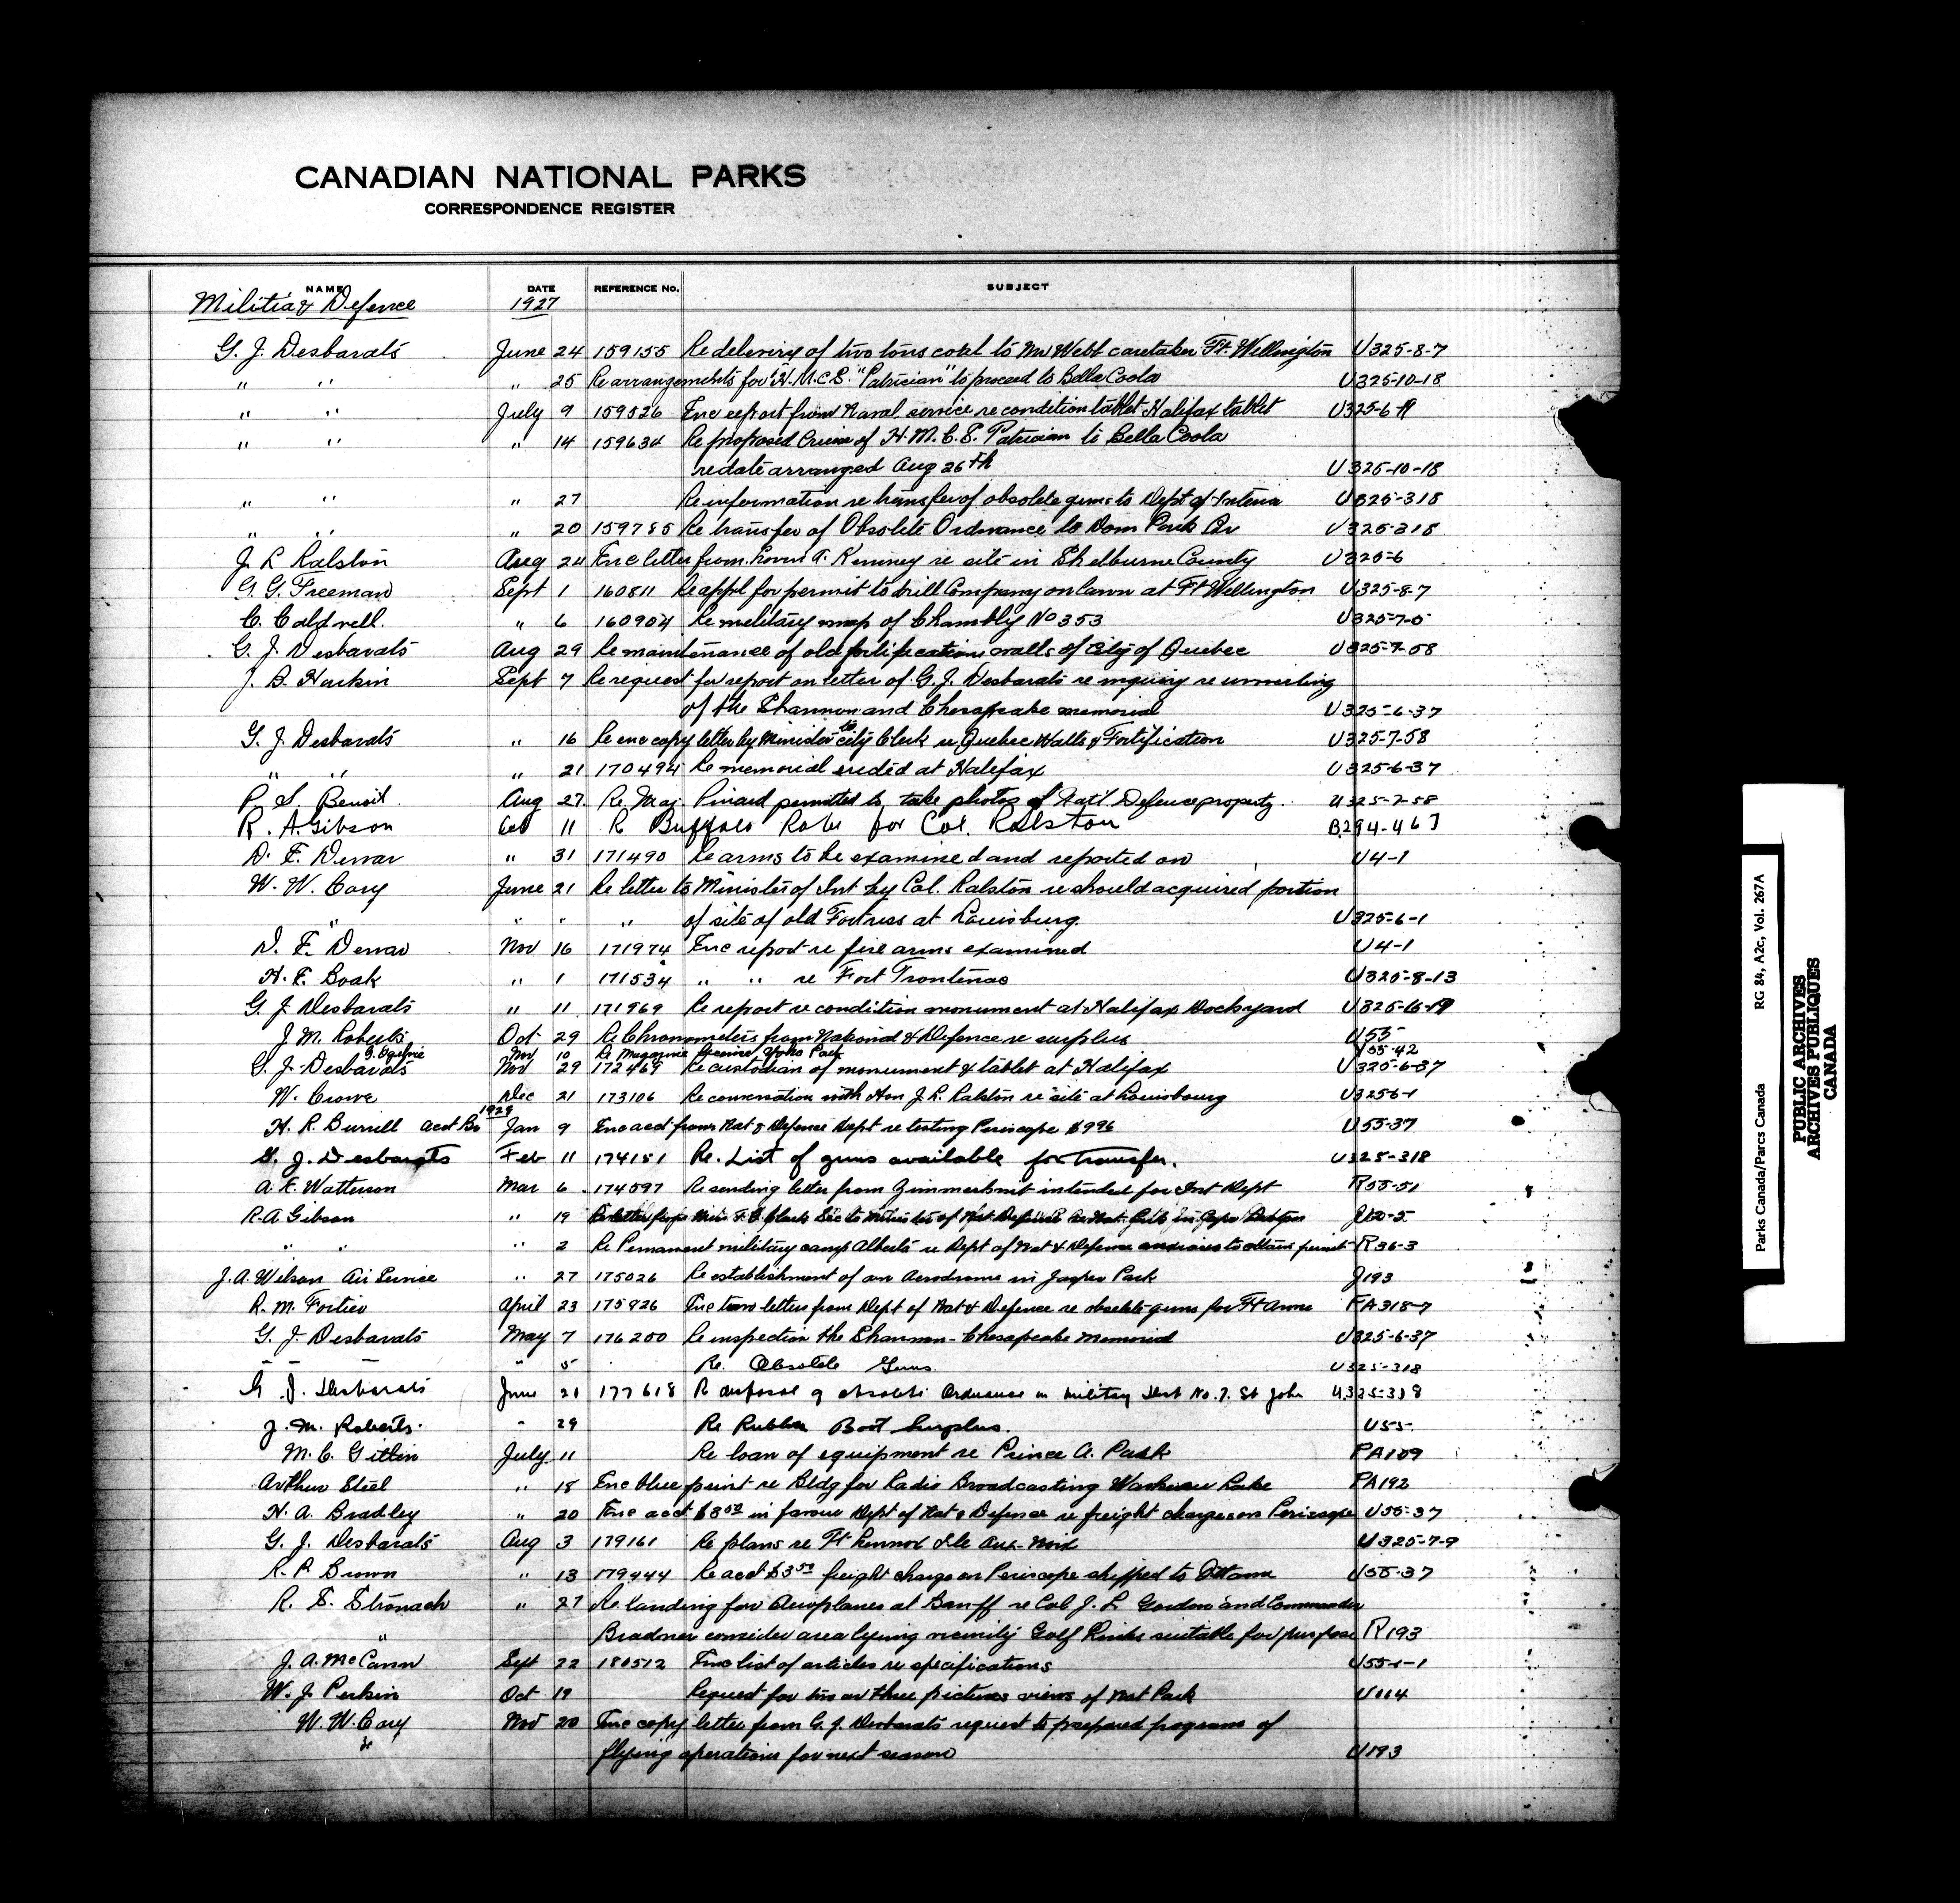 CANADIAN NATIONAL PARKS
CORRESPONDENCE REGISTER
NAME DATE REFERENCE No. SUBJECT
Militia & Defence 1927
G. J. Desbarats June 24 159155 Re delivery of two tons coal to Mr Webb caretaker Ft. Wellington U325-8-7
" " " 25 Re arrangements for "H.M.C.S. "Patrician" to proceed to Bella Coola U325-10-18
" " July 9 159526 Enc report from Naval service re condition tablet Halifax tablet U325-6-19
" " " 14 159634 Re proposed Cruise of H.M.C.S. Patrician to Bella Coola
re date arranged Aug 26th U325-10-18
" " " 27 Re information re transfer of obsolete guns to Dept of Interior U325-318
" " " 20 159785 Re transfer of Obsolete Ordnance to Dom Park Br U325-318
J. L Ralston Aug 24 Enc letter from A. Kenney re site in Shelburne County U325-6
G. G. Freeman Sept 1 160811 Re appl for permit to drill Company on lawn at Ft Wellington U325-8-7
C. Caldwell. " 6 160904 Re military map of Chambly No 353 U325-7-5
G. J. Desbarats Aug 29 Re maintenance of old fortification walls of City of Quebec U325-7-58
J. B. Harkin Sept 7 Re request for report on letter of G. J. Desbarats re inquiry re unveiling
of the Shannon and Chesapeake memorial U325-6-37
G. J. Desbarats " 16 Re enc copy letter by Minister to city Clerk re Quebec Walls & Fortification U325-7-58
" " " 21 170494 Re memorial erected at Halifax U325-6-37
P. S. Benoit. Aug 27 Re Maj. Pinard permitted to take photos of Nat'l Defence property. U325-7-58
R. A. Gibson Oct 11 R Buffalo Robe for Col. Ralston B294-467
D. E. Dewar " 31 171490 Re arms to be examined and reported on U4-1
W. W. Cory June 21 Re letter to Minister of Int by Col. Ralston re should acquired portion
" " " " of site of old Fortress at Louisburg. U325-6-1
D. E. Dewar Nov 16 171974 Enc report re fire arms examined U4-1
H. E. Boak " 1 171534 " " re Fort Frontenac U325-8-13
G. J Desbarats " 11 171969 Re report re condition monument at Halifax Dockyard U325-6-19
J. M. Roberts Oct 29 Re Chronometers from National & Defence re surplus U55
G. Ogilvie Nov 10 Re Magazine Yoho Park U55-42
G. J. Desbarats Nov 29 172469 Re custodian of monument & tablet at Halifax U325-6-37
W. Crowe Dec 21 173106 Re conversation with Hon J. L. Ralston re site at Louisbourg U325-6-1
1928
H. R. Burrill acct Br Jan 9 Enc acct from Nat & Defence Dept re testing Periscope $9.96 U55-37
G. J. Desbarats Feb 11 174151 Re. List of guns available for Transfer. U325-318
A. E. Watterson Mar 6 174597 Re sending letter from intended for Int Dept R55-51
R. A Gibson " 19 Re letter from Miss Sec to Minister of Nat Defence Re Nat. Park in Cape Breton U60-2
" " " 2 Re Permanent military camp Alberta re Dept of Nat & Defence anxious to obtain permit R36-3
J. A. Wilson Air Service " 27 175026 Re establishment of an Aerodrome in Jasper Park J193
R. M. Fortier April 23 175826 Enc two letters from Dept of Nat & Defence re obsolete guns for Ft Anne FA318-7
G. J. Desbarats May 7 176200 Re inspection the Shannon-Chesapeake Memorial U325-6-37
" " " " 5 Re. Obsolete Guns. U325-318
G. J. Desbarats June 21 177618 R disposal of obsolete Ordnance in Military Dist No. 7. St John U325-318
J. M. Roberts. " 29 Re Rubber Boot Surplus. U55
M. C. Gittin July 11 Re loan of equipment re Prince A. Park PA109
Arthur Steel " 18 Enc blue print re Bldg for Radio Broadcasting Waskesiu Lake PA192
H. A. Bradley " 20 Enc acct $3.50 in favour Dept of Nat & Defence re freight charges on Periscope U55-37
G. J. Desbarats Aug 3 179161 Re plans re Ft Lennox Isle Aux-Noix U325-7-9
R. P. Brown " 13 179444 Re acct $3.50 freight charge on Periscope shipped to Ottawa U55-37
R. S. Stronach " 27 Re landing for Aeroplanes at Banff re Col J. L Gordon and Commander
" Bradner consider area lying vicinity Golf Links suitable for purpose R193
J. A. McCann Sept 22 180512 Enc list of articles re specifications U55-1-1
W. J. Perkin Oct 19 Request for two or three pictures views of Nat Park U114
W. W. Cory Nov 20 Enc copy letter from G. J. Desbarats request to prepared program of
flying operations for next season U193
Parks Canada/Parcs Canada RG 84, A2c, Vol. 267A
PUBLIC ARCHIVES
ARCHIVES PUBLIQUES
CANADA